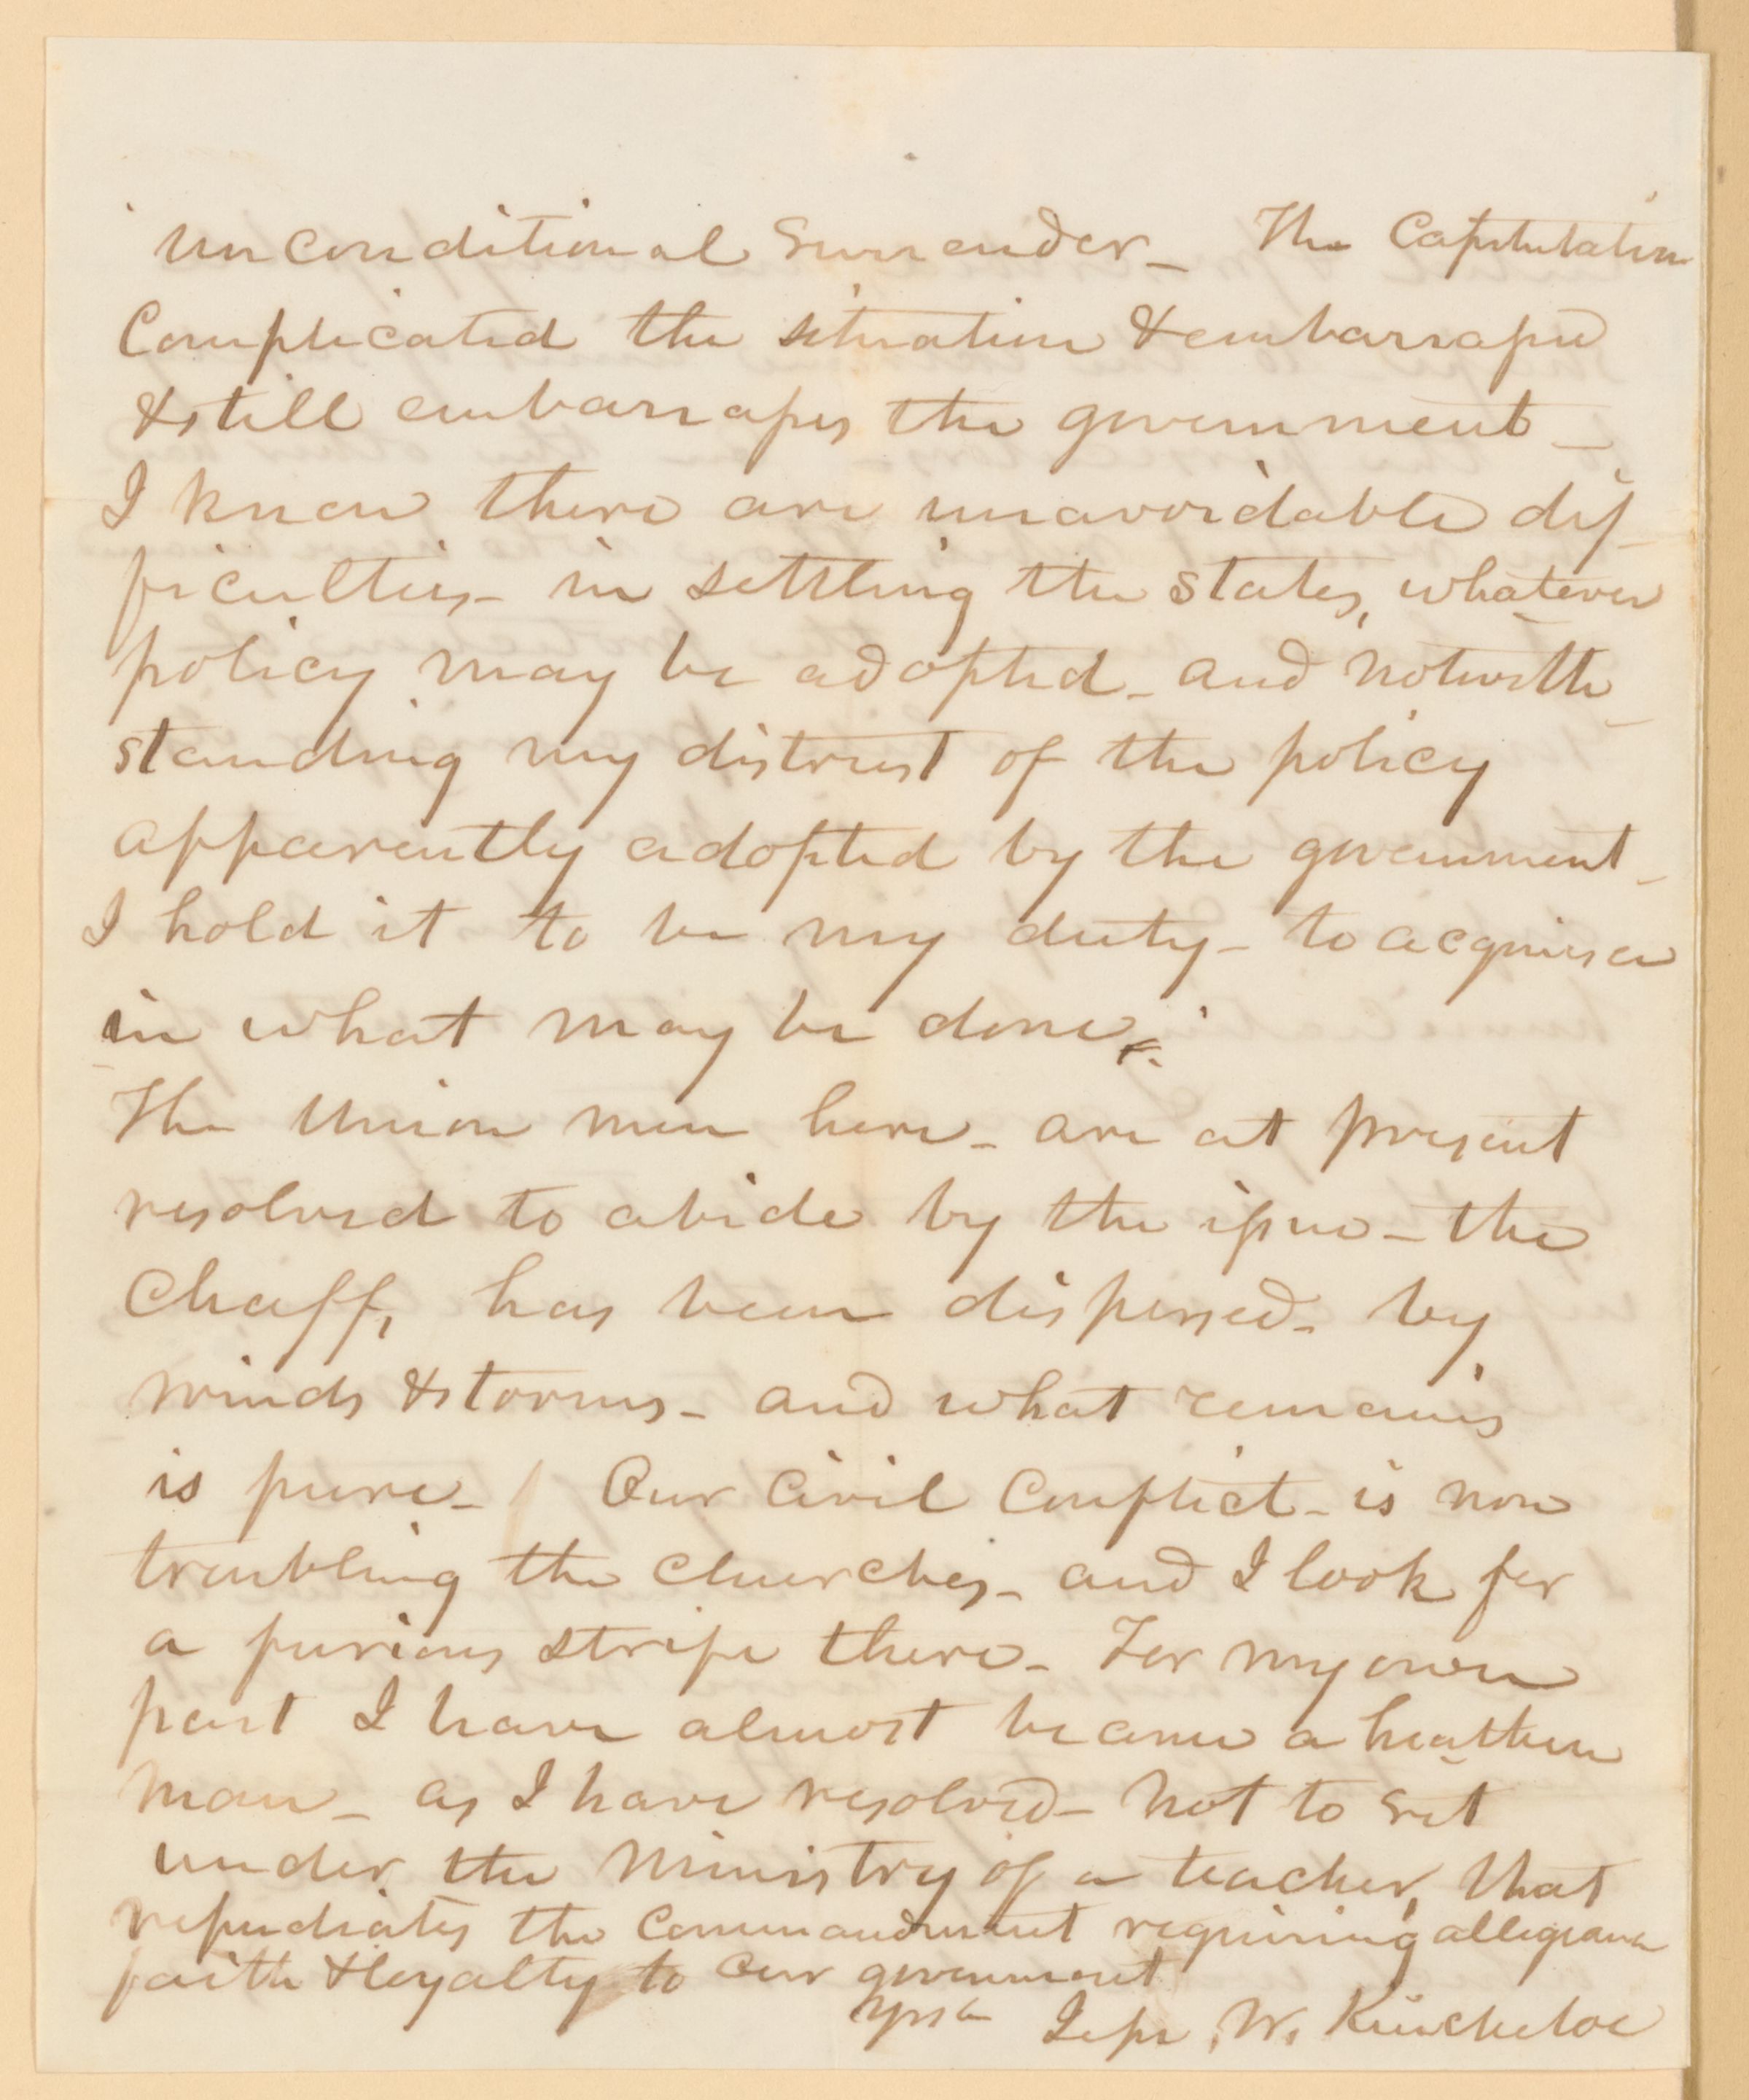 unconditional surrender_ The Capitulation
Complicated the situation & embarrassed
& still embarrasses the government_
I know there are unavoidable dif_
ficulties_ in settling the states, whatever
policy may be adopted_ and notwith_
standing my distrust of the policy
apparently adopted by the government_
I hold it to be my duty_ to acquiesce
in what may be done.
The Union men here_ are at present
resolved to abide by the issue_ the
Chaff, has been dispersed_ by
winds & storms_ and what remains
is pure_ Our Civil Conflict_ is now
troubling the churches_ and I look for
a furious strife there_ For my own
part I have almost became a heathen
man_ as I have resolved_ not to set
under the ministry of a teacher, that
repudiates the Commandment requiring allegiance
faith & loyalty to our government
Jesse W. Kincheloe